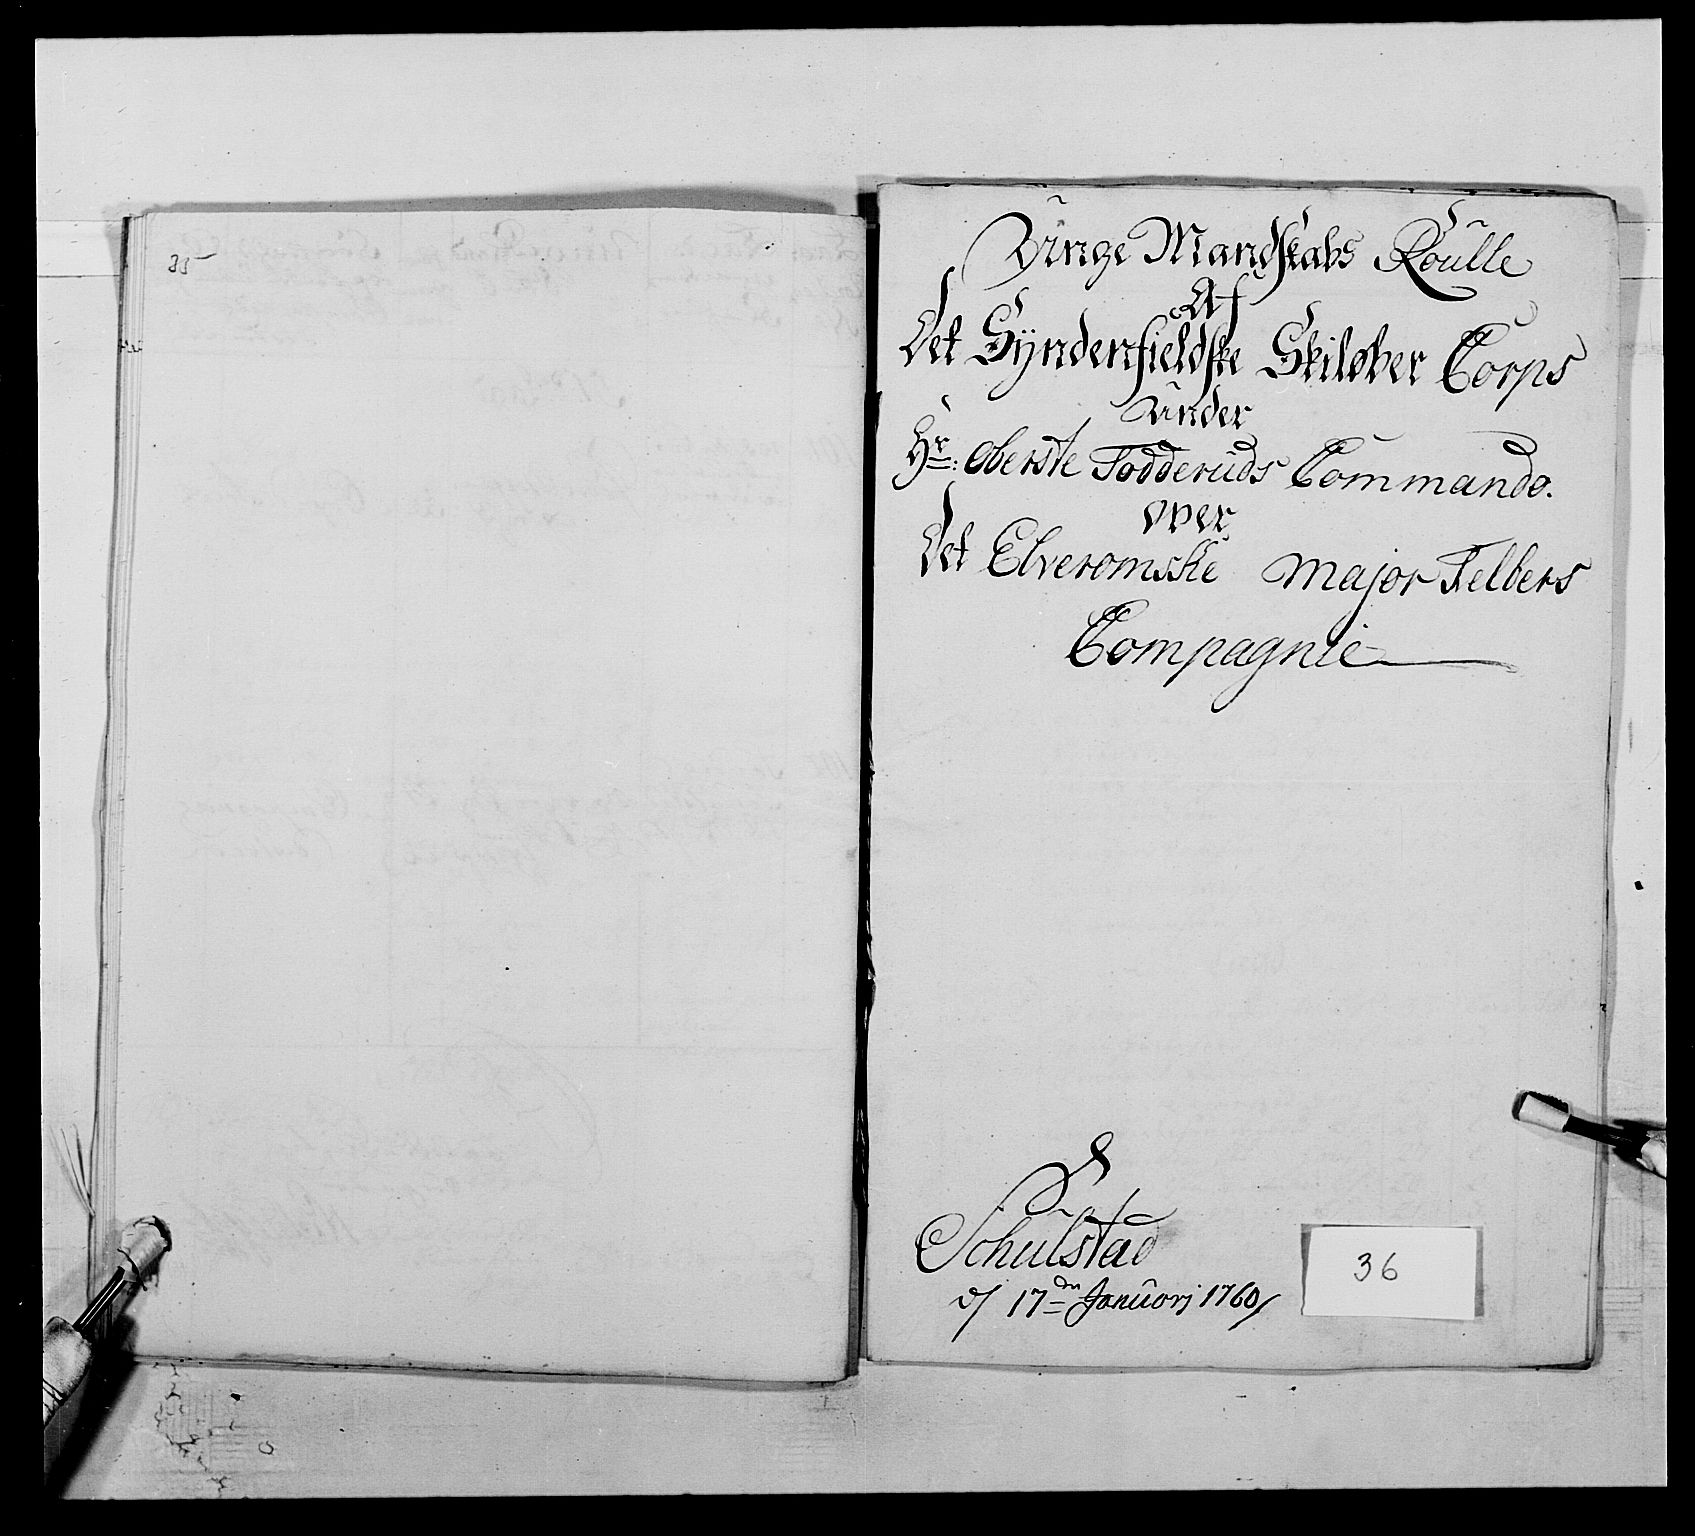 35
Unge Mandskabs Roulle
Af
Det Syndenfieldske Skiløber Corps
Under
Hr: Oberste Todderuds Commando.
over
Det Elveromske Major Felbers
Compagnie
Schulstad
d 17de Januarj 1760
36